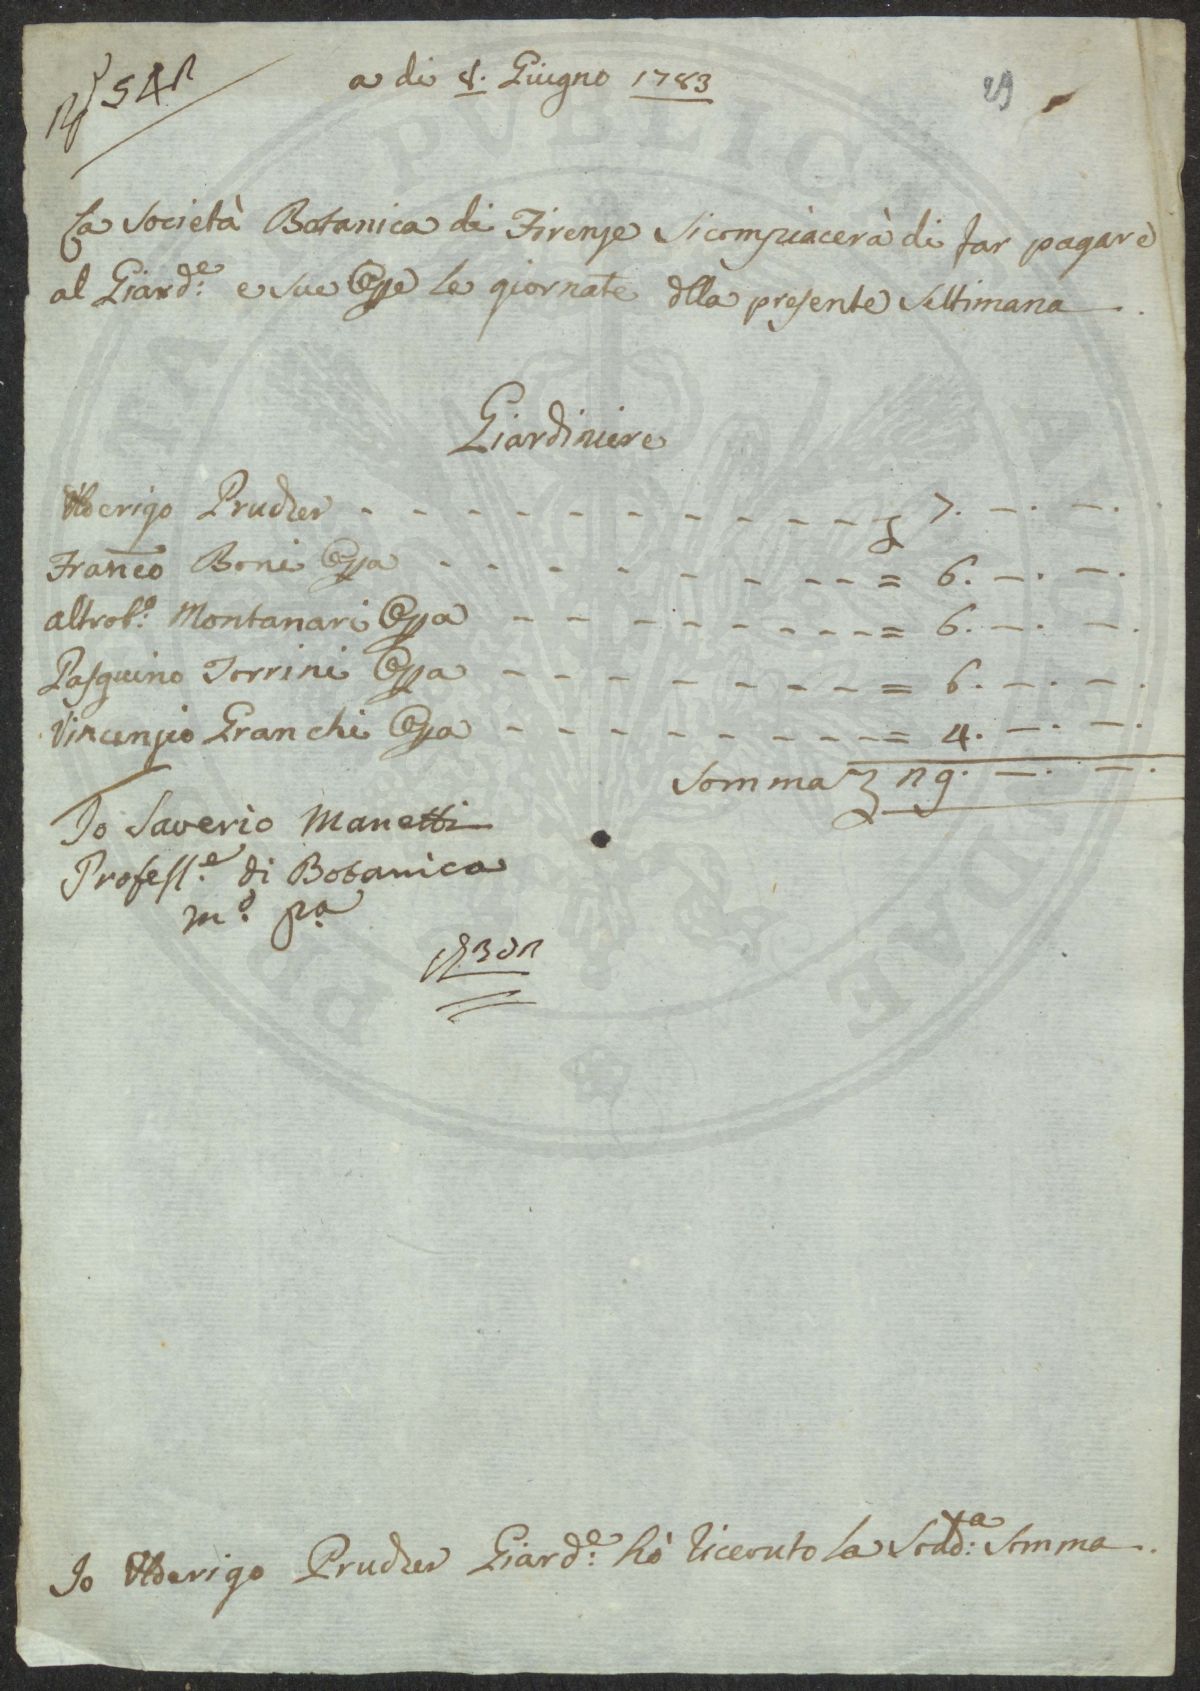 a di 8. Giugno 1783
29
La Società Botanica di Firenze si compiacerà di far pagare
al Giard.e e sue Opre le giornate dlla presente Settimana.
Giardiniere
Ulderigo Prucher - - - - - - - - - - - - £ 7. —. —.
Franco Boni Opra - - - - - - - - - = 6. —. —.
Altrob.o Montanari Opra - - - - - - - - = 6. —. —.
Pasquino Torrini Opra - - - - - - - - = 6. —. —.
Vincenzio Granchi Opra - - - - - - - - - = 4. —. —.
Somma £ 29. —. —.
Io Saverio Manetti
Profess.e di Botanica
m.o pa
Io Ulderigo Prucher Giard.e hò riceuto la Sudd.a Somma.